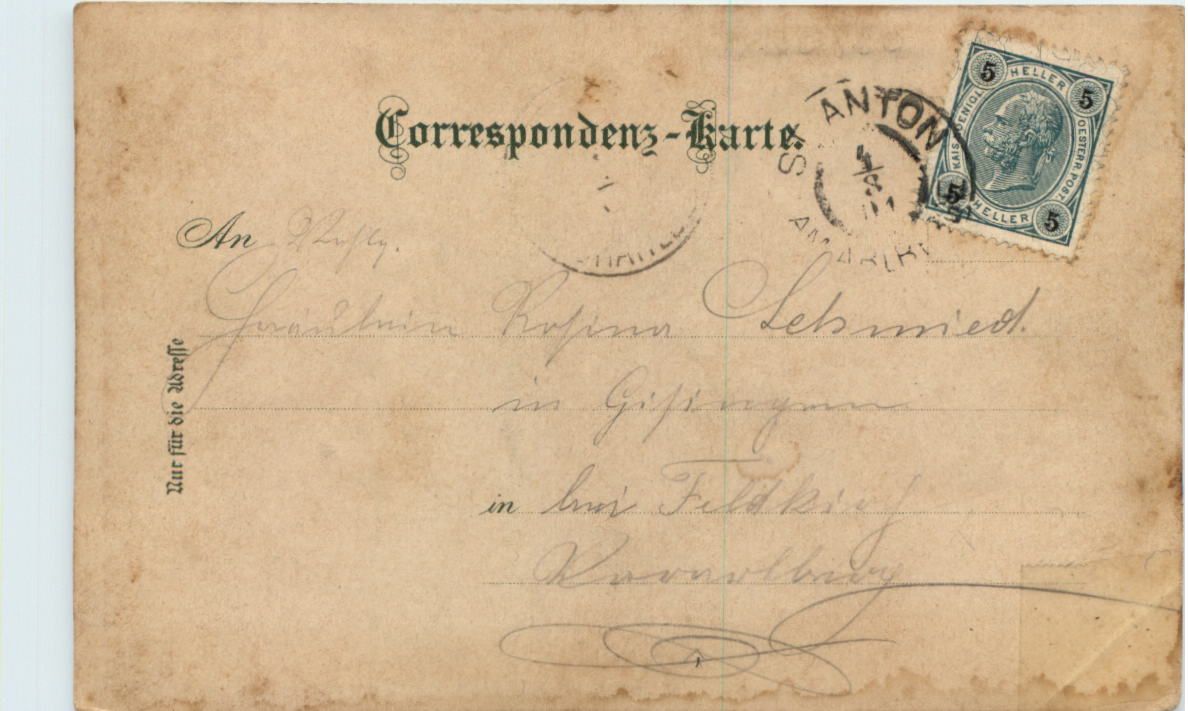 Correspondenz-Karte.
ST ANTON
4/8 01
AM ARLBERG
5 HELLER 5
KAIS. KÖNIGL.
OESTERR. POST.
5 HELLER 5
An Wohlg.
Fräulein Rosina Schmied.
in Gisingen
in bei Feldkirch
Vorarlberg
Nur für die Adresse